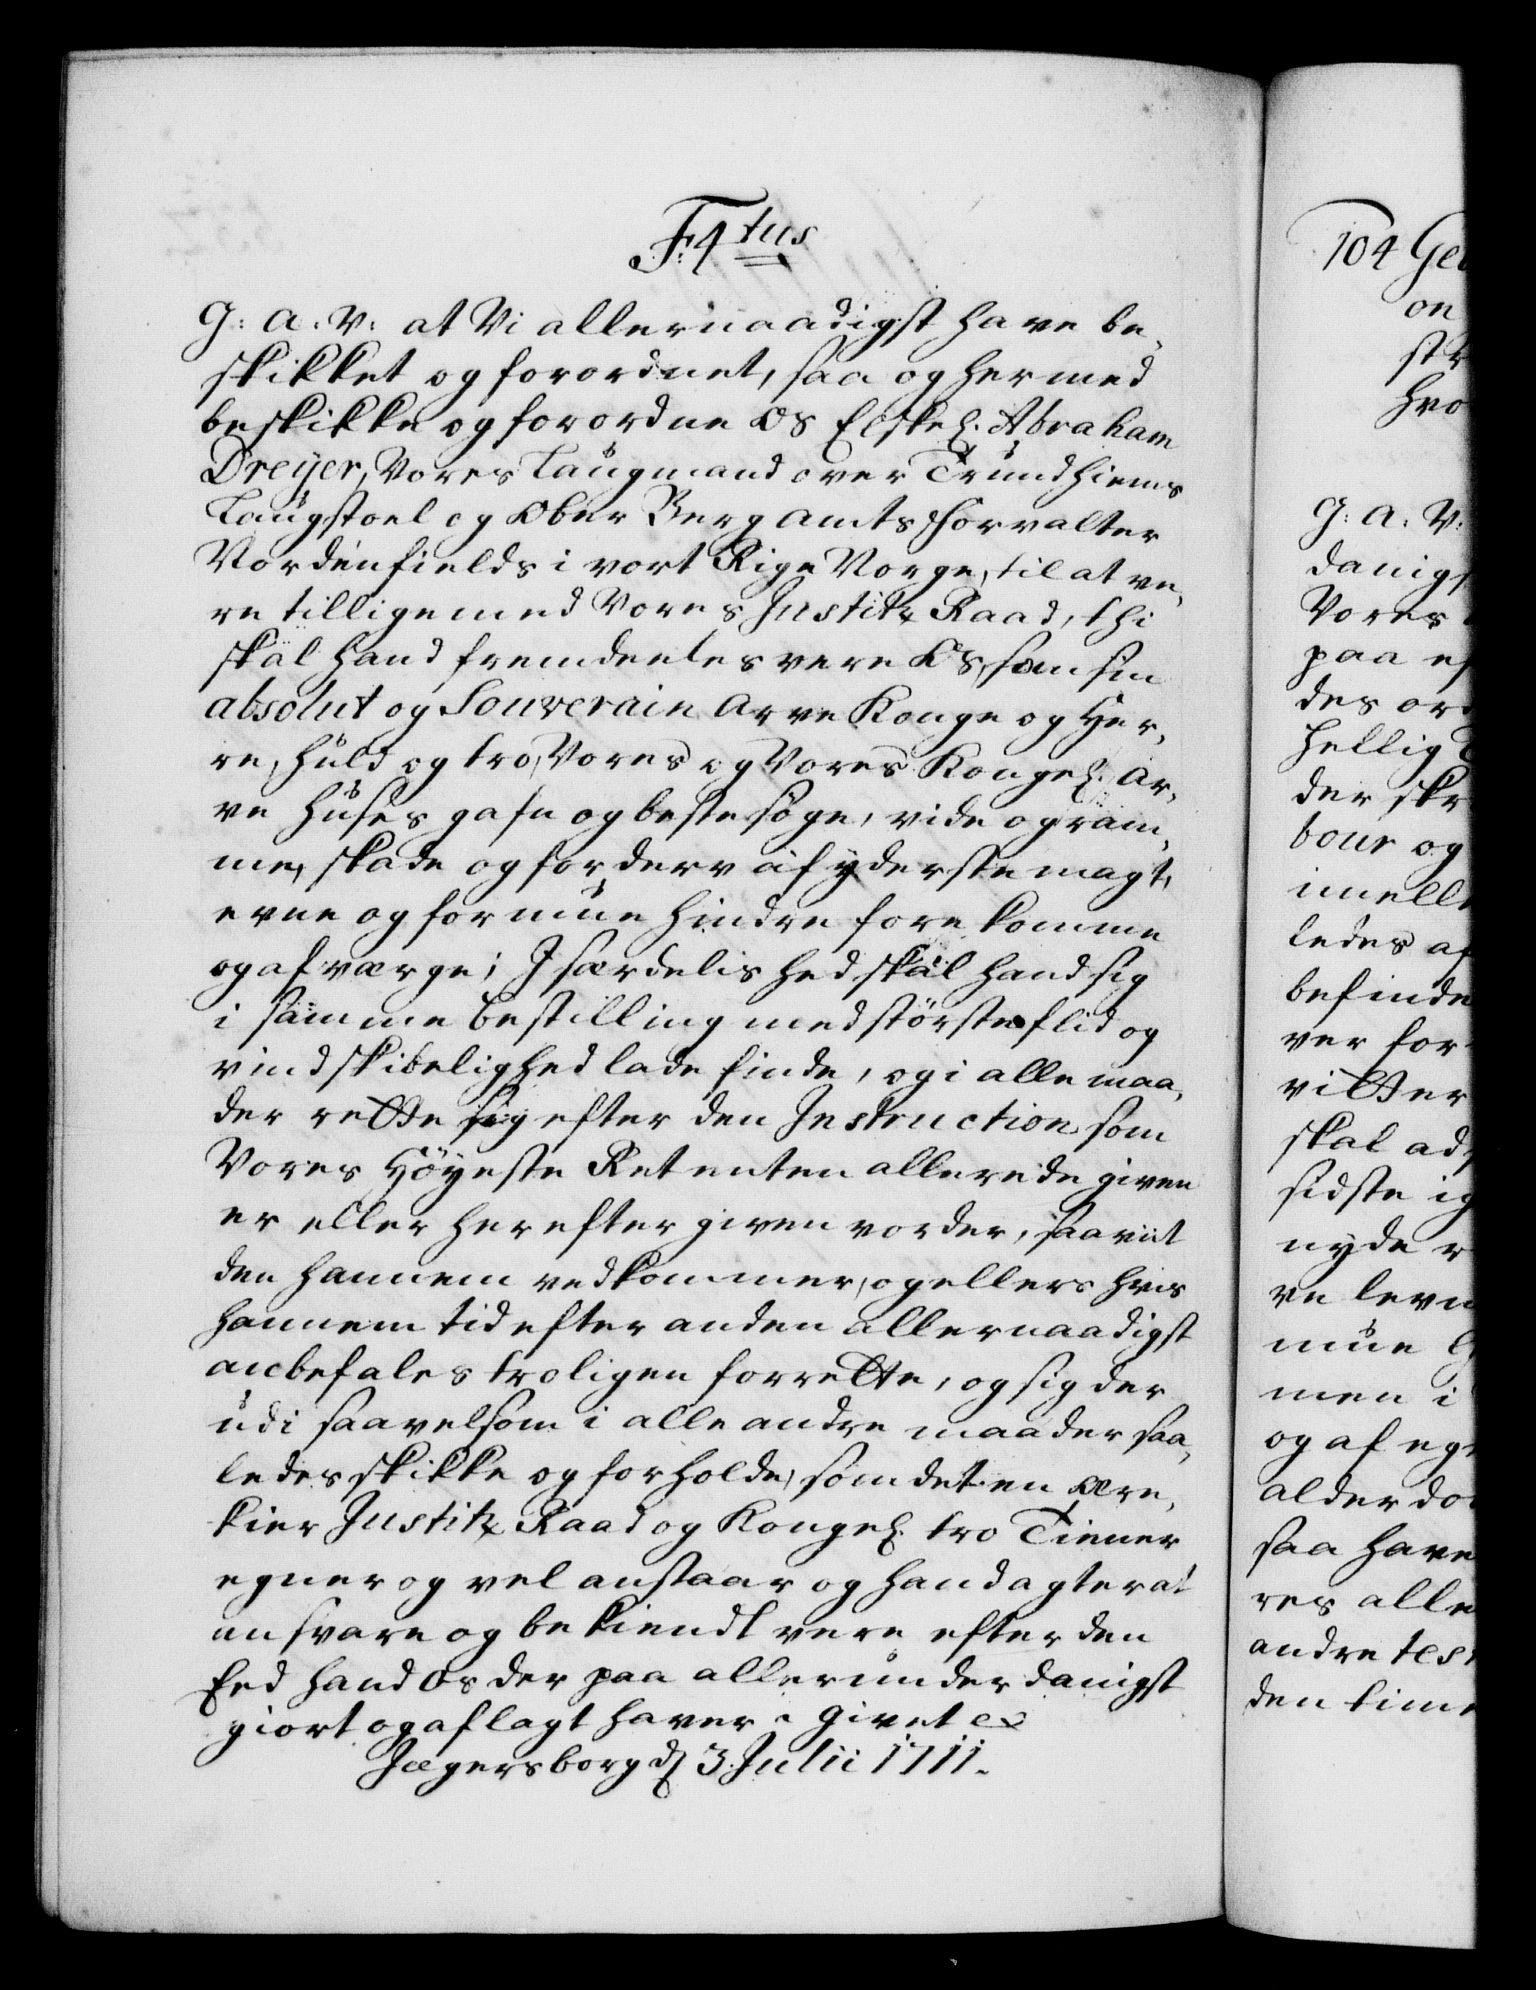 F: 4tus
G: A: V: at Vi allernaadigst have be,
skikket og forordnet, saa og hermed
beskikke og forordne Os Elskel. Abraham
Dreÿer, Vores Laugmand over Trundhiems
Laugstoel og Ober Berg Amts forvalter
Nordenfields i vort Rige Norge, til at ve,
re tillige med Vores Justitz Raad, thi
skal hand fremdeeles vere Os, som sin
absolut og Souverain Arve Konge og Her,
re, huld og tro, Vores og Vores Kongel. Ar,
ve Huses gafn og beste søge, vide og ram,
me, skade og forderv af yderste magt,
evne og formue hindre forekomme
og afværge; I særdelished skal hand sig
i samme bestilling med største flid og
vindskibelighed lade finde, og i alle maa,
der rette sig efter den Instruction som
Vores Høyeste Ret enten allerede given
er eller herefter given vorder, saa viit
den hannem vedkommer, og ellers hvis
hannem tid efter anden allernaadigst
anbefales troligen forrette, og sig der
udi saavelsom i alle andre maader saa,
ledes skikke og forholde, som det en ære,
kier Justitz Raad og Kongel. tro Tiener
egner og vel anstaar og hand agter at
ansvare og bekiendt vere efter den
Eed hand Os der paa allerunderdanigst
giort og aflagt haver. Givet
Jægersborg d. 3. Julii 1711.
104 Gel
on
st
hvo
G: A: V:
danigs
Vores
paa
des or
hellig
der skr
bour og
imelle
ledes af
befinde
ver for
vitter
skal ad
sidste ig
nyde
re leve
mue
men i
og af eg
alderdo
saa have
res alle
andre test
den time